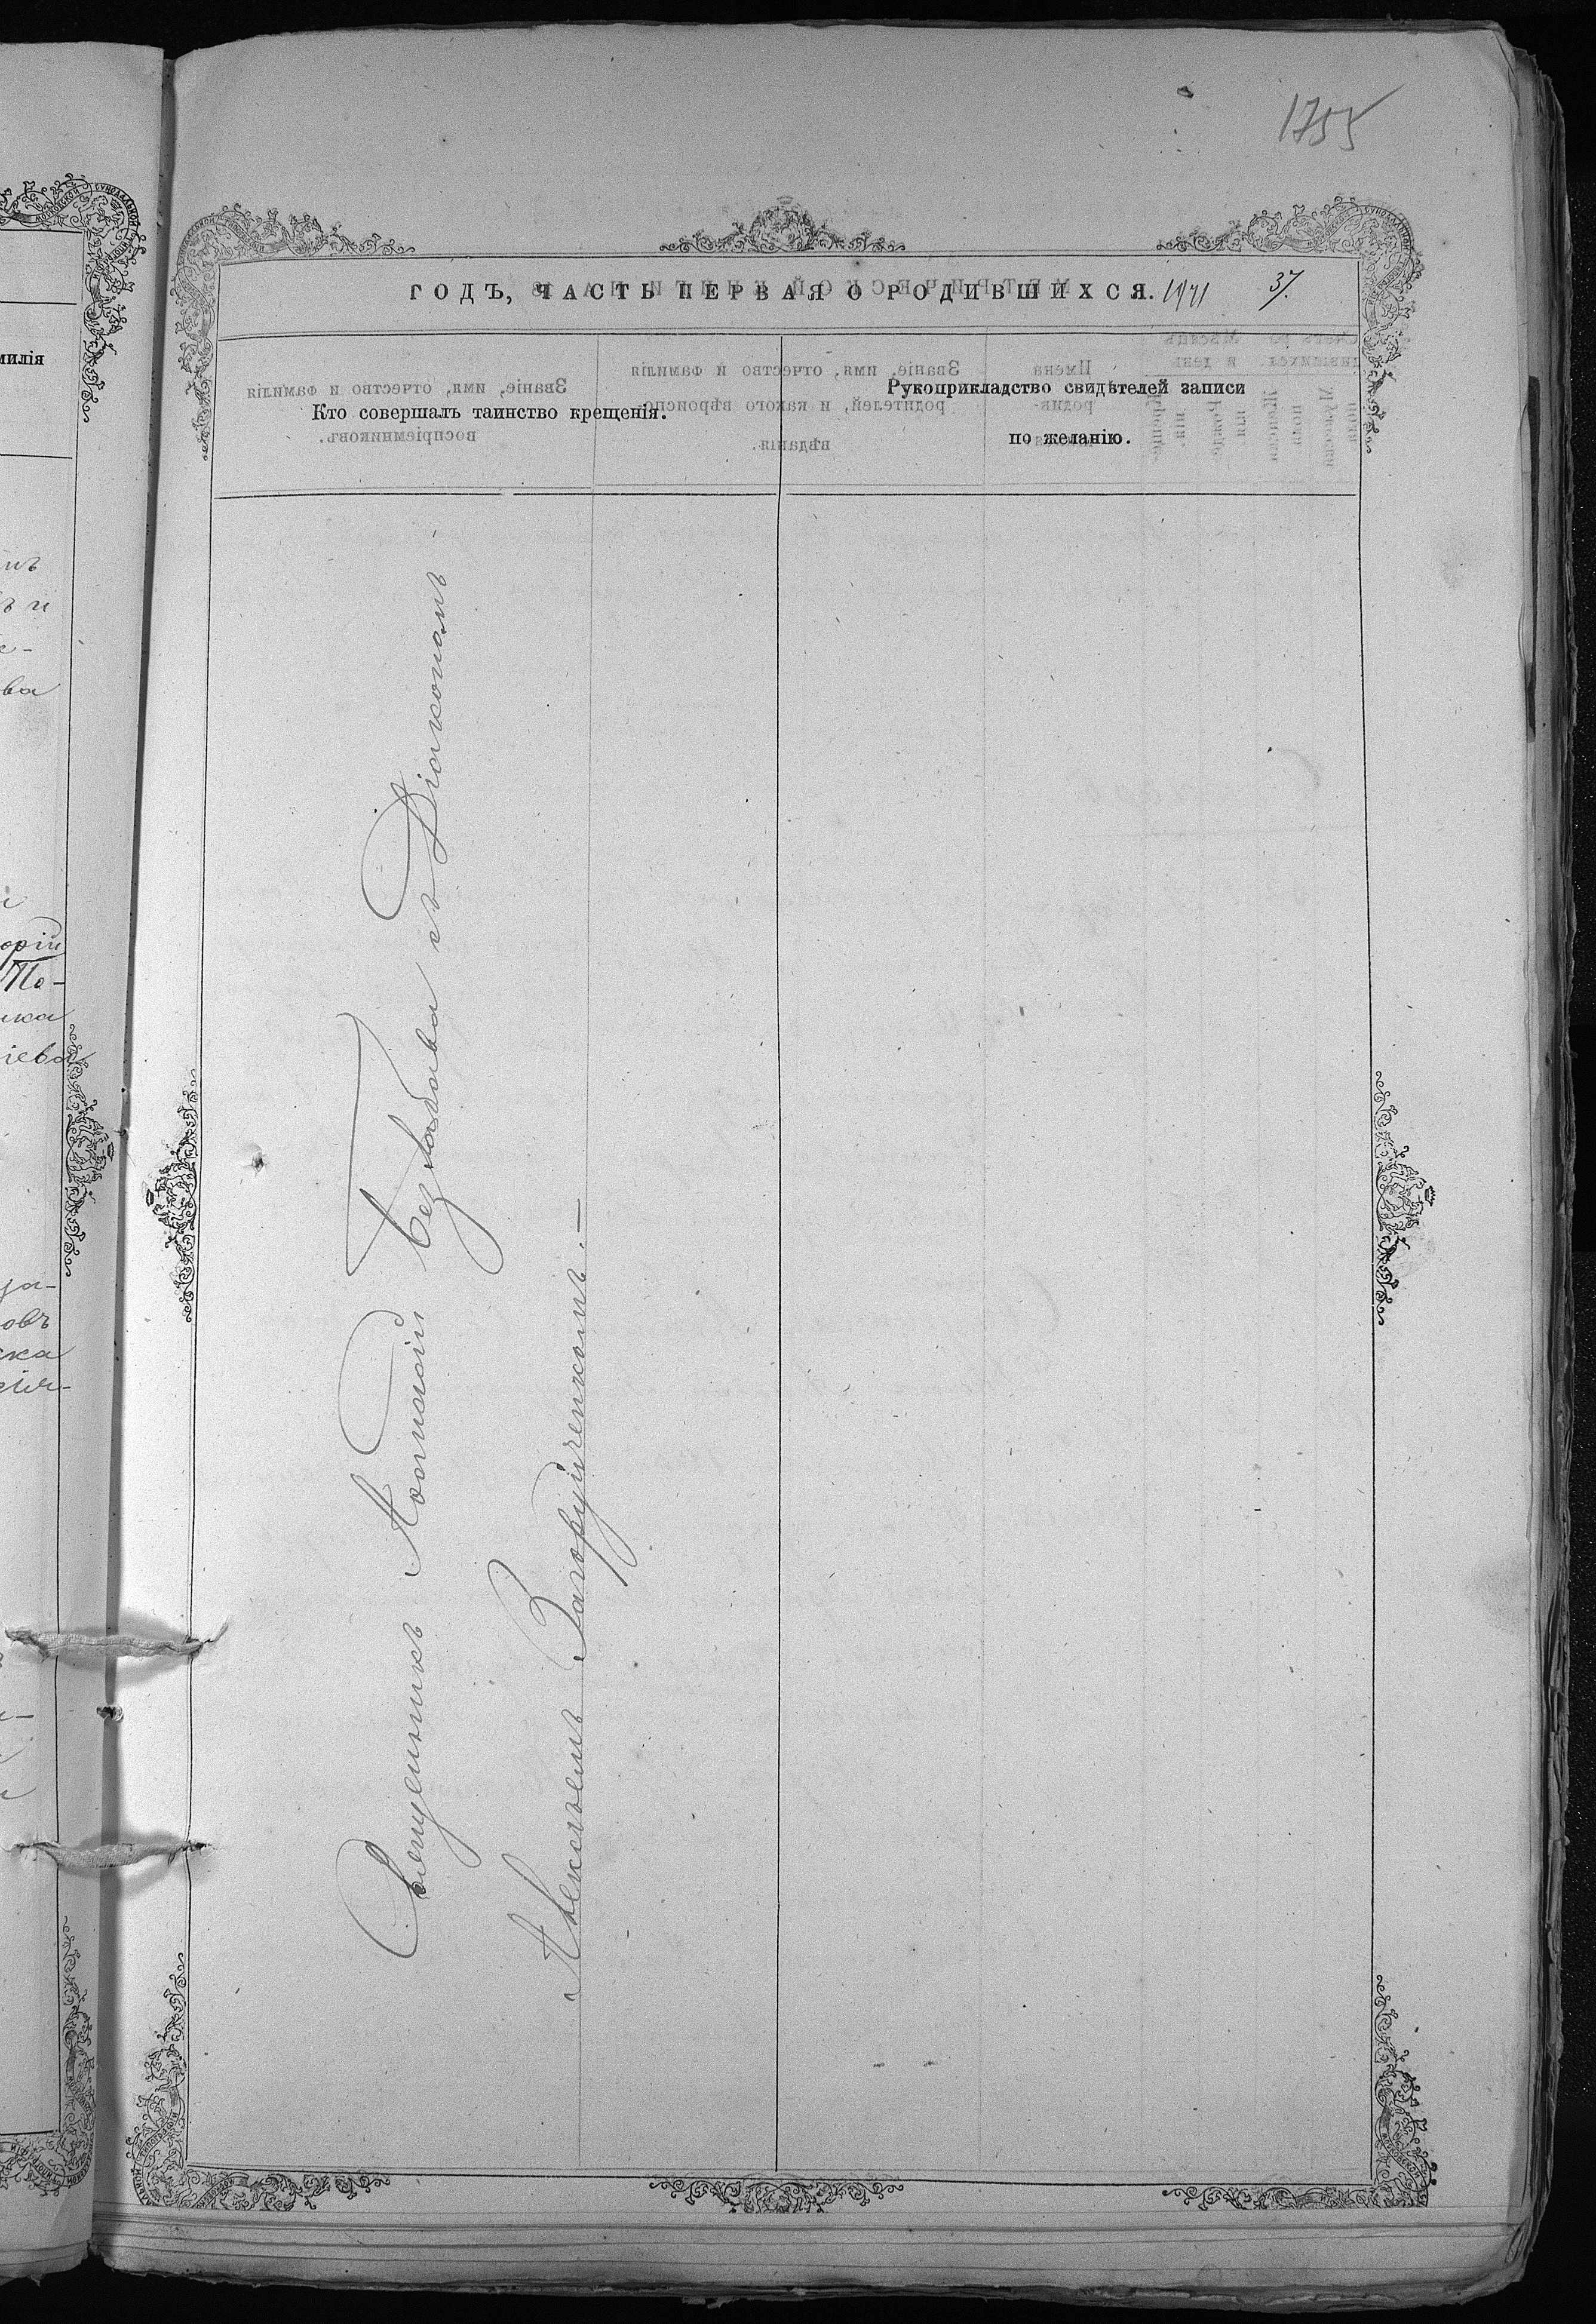 1755
ГОДЪ, ЧАСТЬ ПЕРВАЯ О РОДИВШИХСЯ.
37.
Кто совершалъ таинство крещенія.
Рукоприкладство свидѣтелей записи
по желанію.
Священникъ Потапій Безлабава съ Діакономъ
Алексѣемъ Загоруйченкомъ. —
милія
ва
орій
По-
ика
іева
овъ
ска